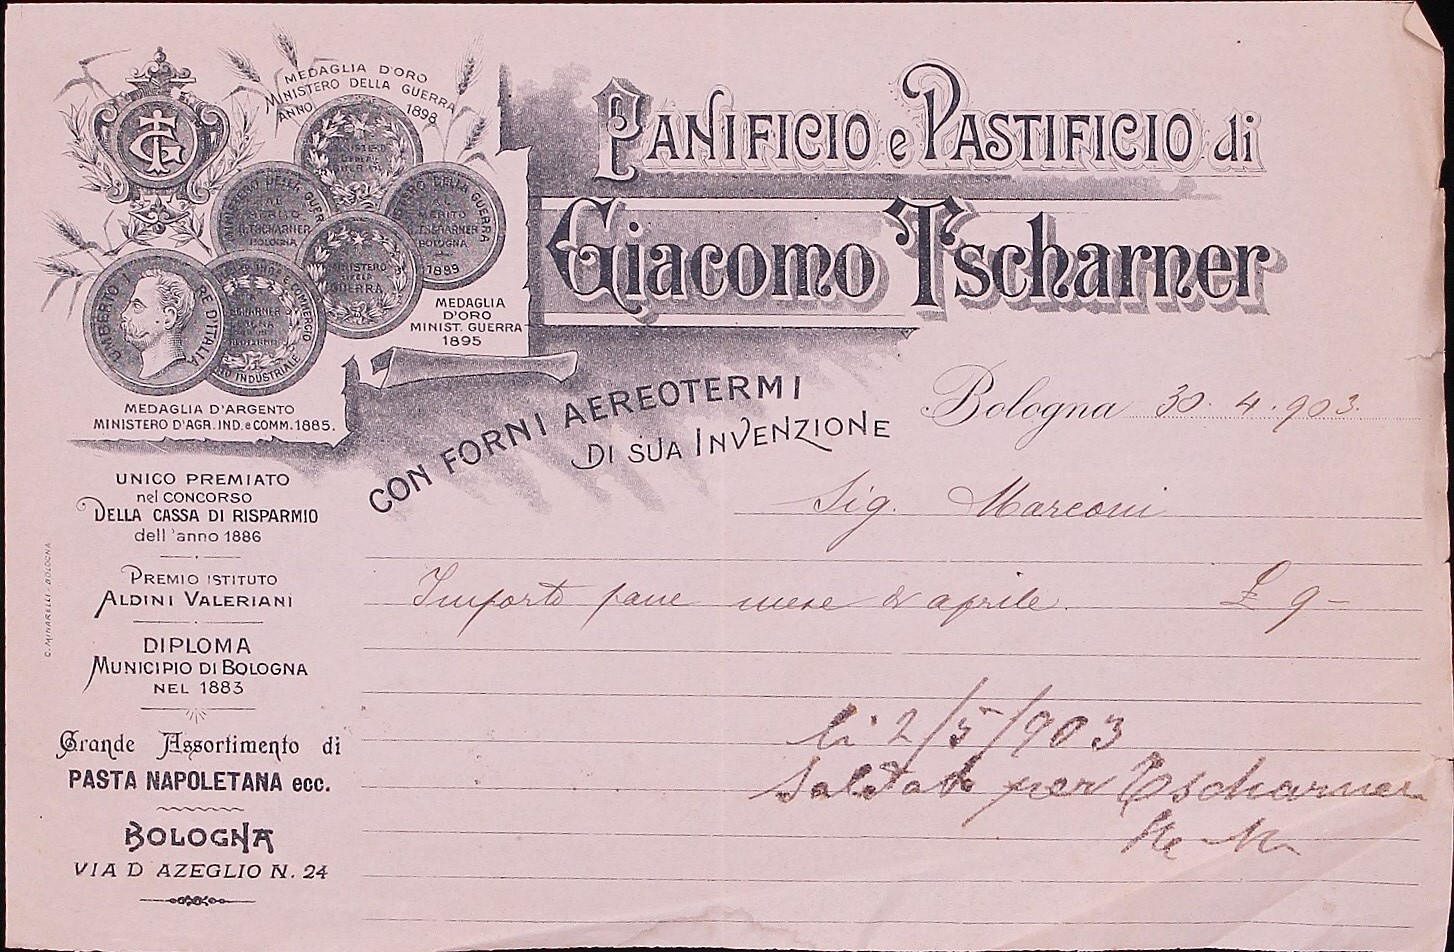 MEDAGLIA D'ORO
MINISTERO DELLA GUERRA
ANNO 1898
GT
MINISTERO DELLA GUERRA
AL
MERITO
G. TSCHARNER
BOLOGNA
MINISTERO DELLA GUERRA
AL
MERITO
G. TSCHARNER
BOLOGNA
1889
MINISTERO
DELLA
GUERRA
UMBERTO I RE D'ITALIA
MEDAGLIA
D'ORO
MINIST. GUERRA
1895
MEDAGLIA D'ARGENTO
MINISTERO D'AGR. IND. e COMM. 1885.
PANIFICIO e PASTIFICIO di
Giacomo Tscharner
CON FORNI AEREOTERMI
DI SUA INVENZIONE
Bologna 30. 4. 903.
Sig. Marconi
Importo pane mese d aprile. £ 9-
li 2/5/903
Saldato per Tscharner
UNICO PREMIATO
nel CONCORSO
DELLA CASSA DI RISPARMIO
dell'anno 1886
PREMIO ISTITUTO
ALDINI VALERIANI
DIPLOMA
MUNICIPIO DI BOLOGNA
NEL 1883
Grande Assortimento di
PASTA NAPOLETANA ecc.
BOLOGNA
VIA D AZEGLIO N. 24
C. MINARELLI - BOLOGNA